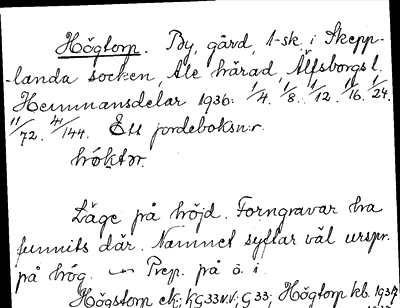 Högtorp. By, gård, 1-sk. i Skepp-
-landa socken, Ale härad, Älfsborgs l.
Hemmansdelar 1936: 1/4. 1/8. 1/12. 1/16. 1/24.
11/72. 41/144. Ett jordeboksn:r.
höktor.
Läge på höjd. Forngravar ha
funnits där. Namnet syftar väl urspr.
på hög. — Prep. på o. i.
Högstorp ek; KG33N.V.; G33; Högtorp kb. 1937